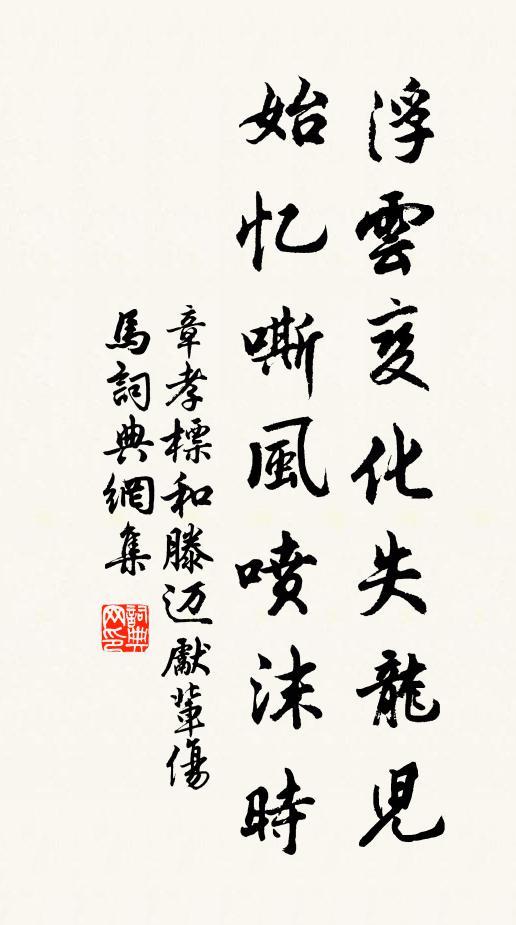 浮雲变化失龍児
始忆嘶風喷沫時
章孝標和滕迈獻輩傷
馬詞典網集
詞典
网印